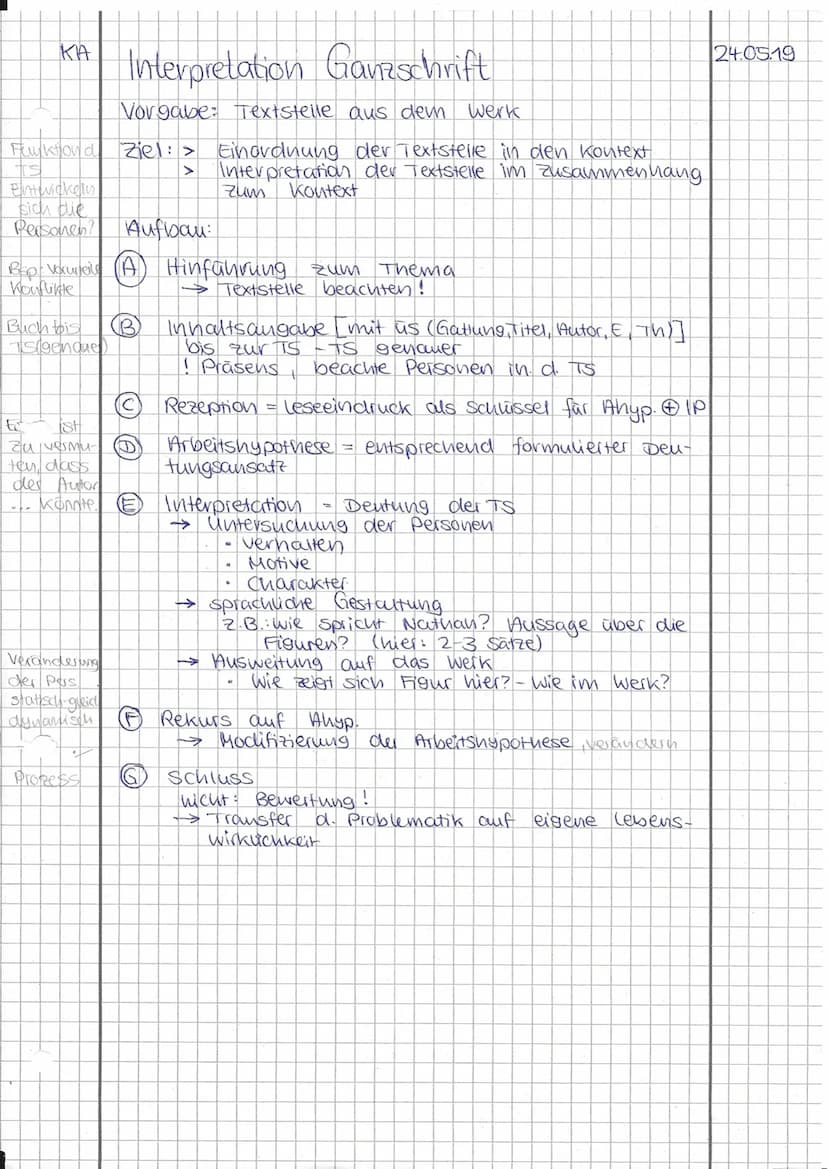 KA
Interpretation Ganzschrift
24.05.19
Vorgabe: Textstelle aus dem Werk
Ziel: > Einordnung der Textstelle in den Kontext
> Interpretation der Textstelle im Zusammenhang
zum Kontext
Funktion d.
TS
Entwickeln
sich die
Personen?
Aufbau:
Bsp: Vorurteile
Konflikte
(A) Hinführung zum Thema
→ Textstelle beachten!
Buch bis
TS (genauer)
(B) Inhaltsangabe [mit ÜS (Gattung, Titel, Autor, E, Th)]
bis zur TS - TS genauer
! Präsens, beachte Personen in d. TS
(C) Rezeption = Leseeindruck als Schlüssel für Ahyp. ⊕ IP
Es ist
zu vermu-
ten, dass
der Autor
... könnte.
(D) Arbeitshypothese = entsprechend formulierter Deu-
tungsansatz
(E) Interpretation = Deutung der TS
→ Untersuchung der Personen
• Verhalten
• Motive
• Charakter
→ sprachliche Gestaltung
z.B.: Wie spricht Nathan? Aussage über die
Figuren? (hier: 2-3 Sätze)
→ Ausweitung auf das Werk
• Wie zeigt sich Figur hier? - Wie im Werk?
Veränderung
der Pers.
statisch-gleich
dynamisch
(F) Rekurs auf Ahyp.
→ Modifizierung der Arbeitshypothese, verändern
Prozess
(G) Schluss
nicht: Bewertung!
→ Transfer d. Problematik auf eigene Lebens-
wirklichkeit